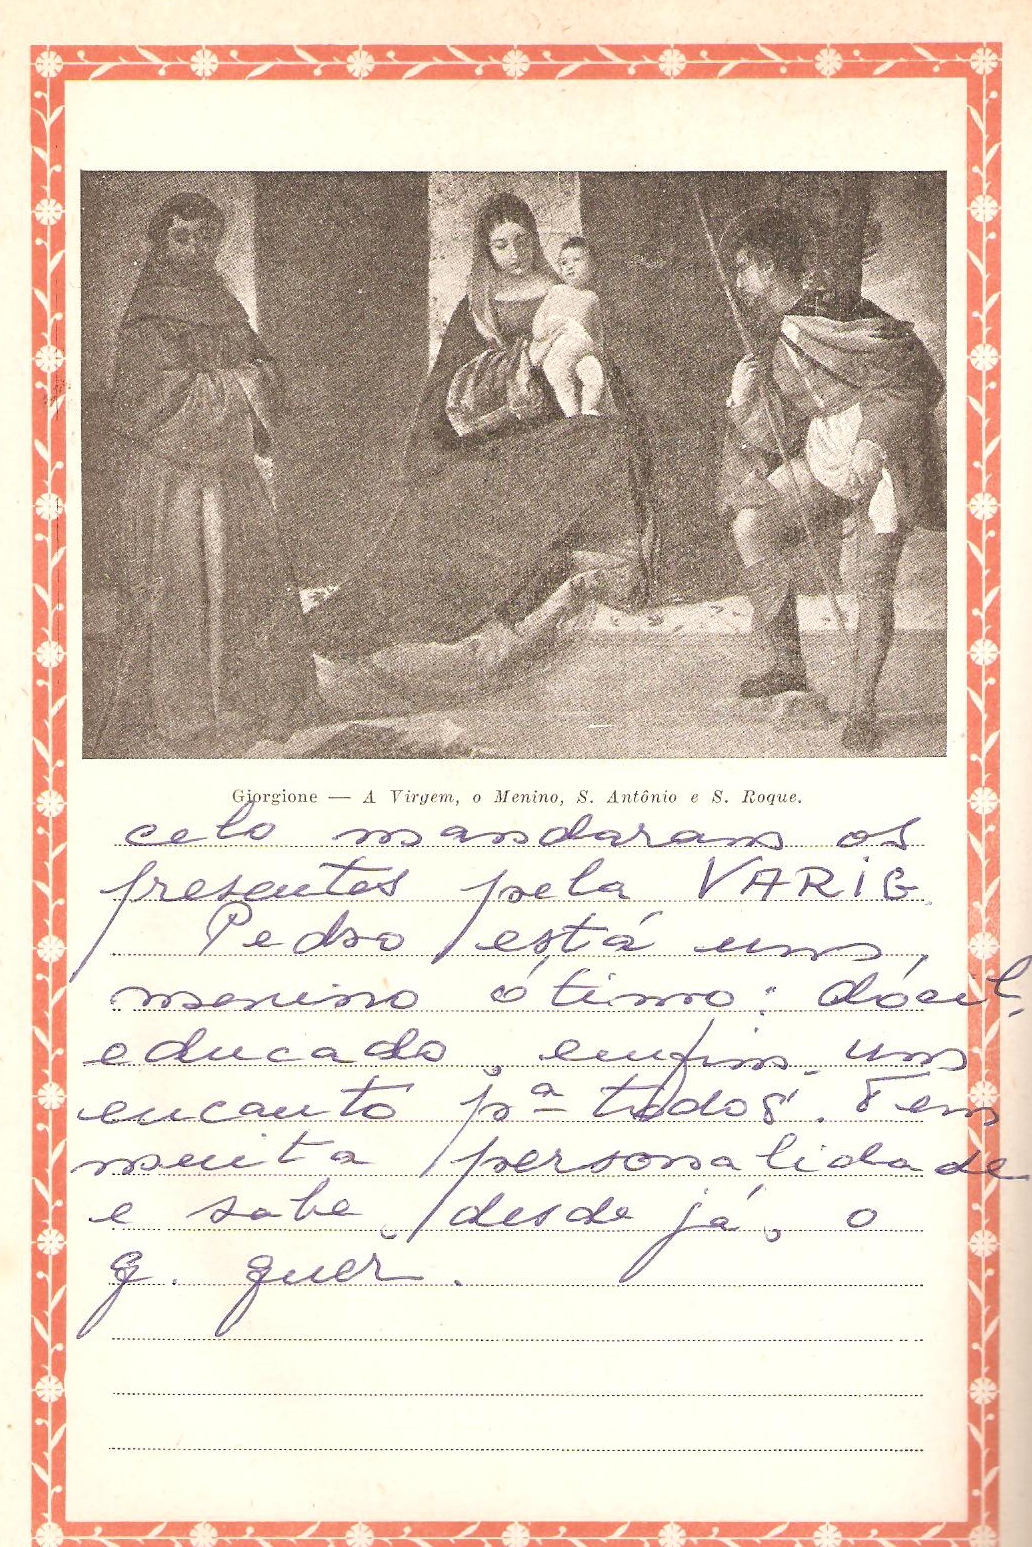 Giorgione — A Virgem, o Menino, S. Antônio e S. Roque.
celo mandaram os
presentes pela VARIG.
Pedro está um
menino ótimo: dócil,
educado, enfim, um
encanto pª todos. Tem
muita personalidade
e sabe, desde já, o
q. quer.